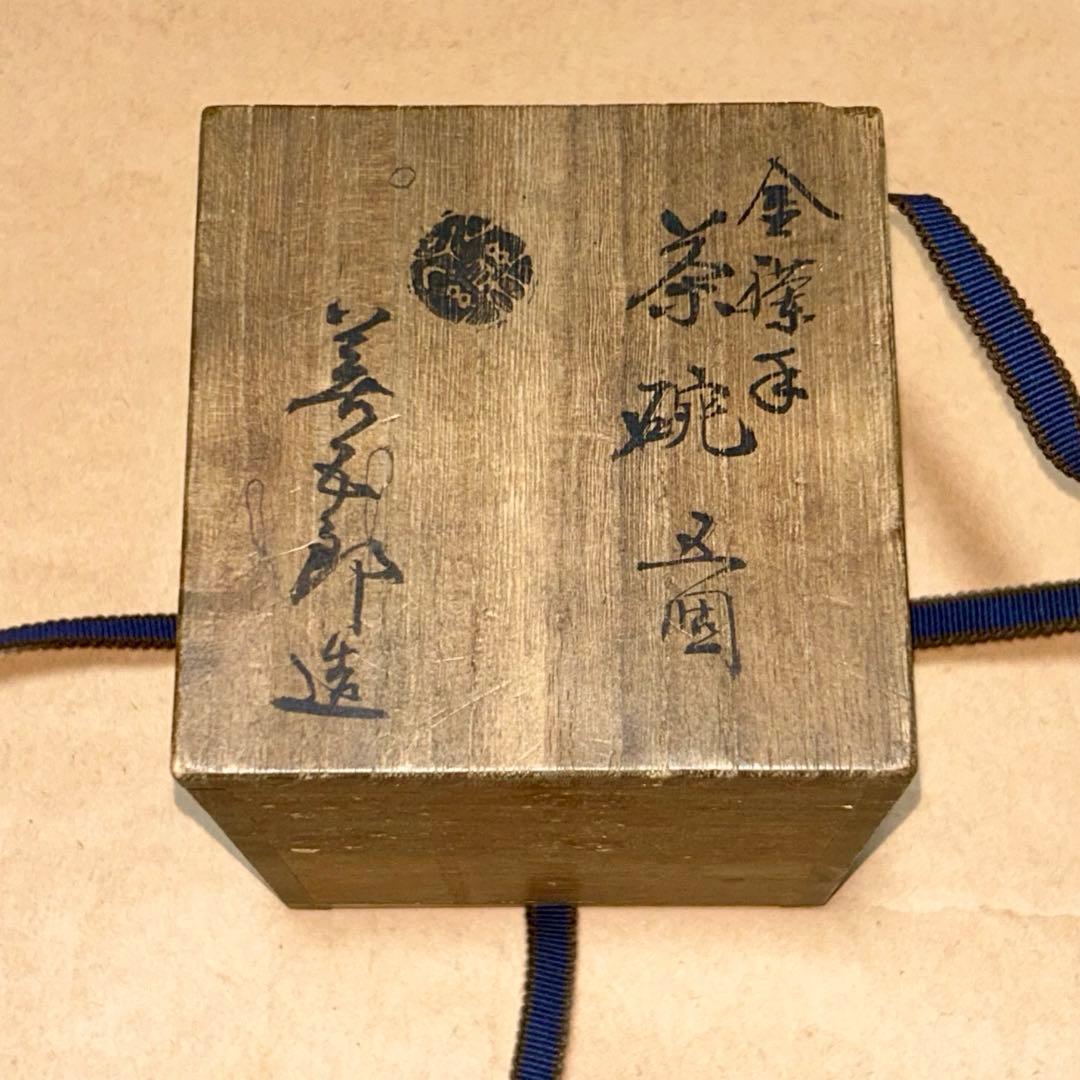 金襴手
茶碗 五個
善五郎造